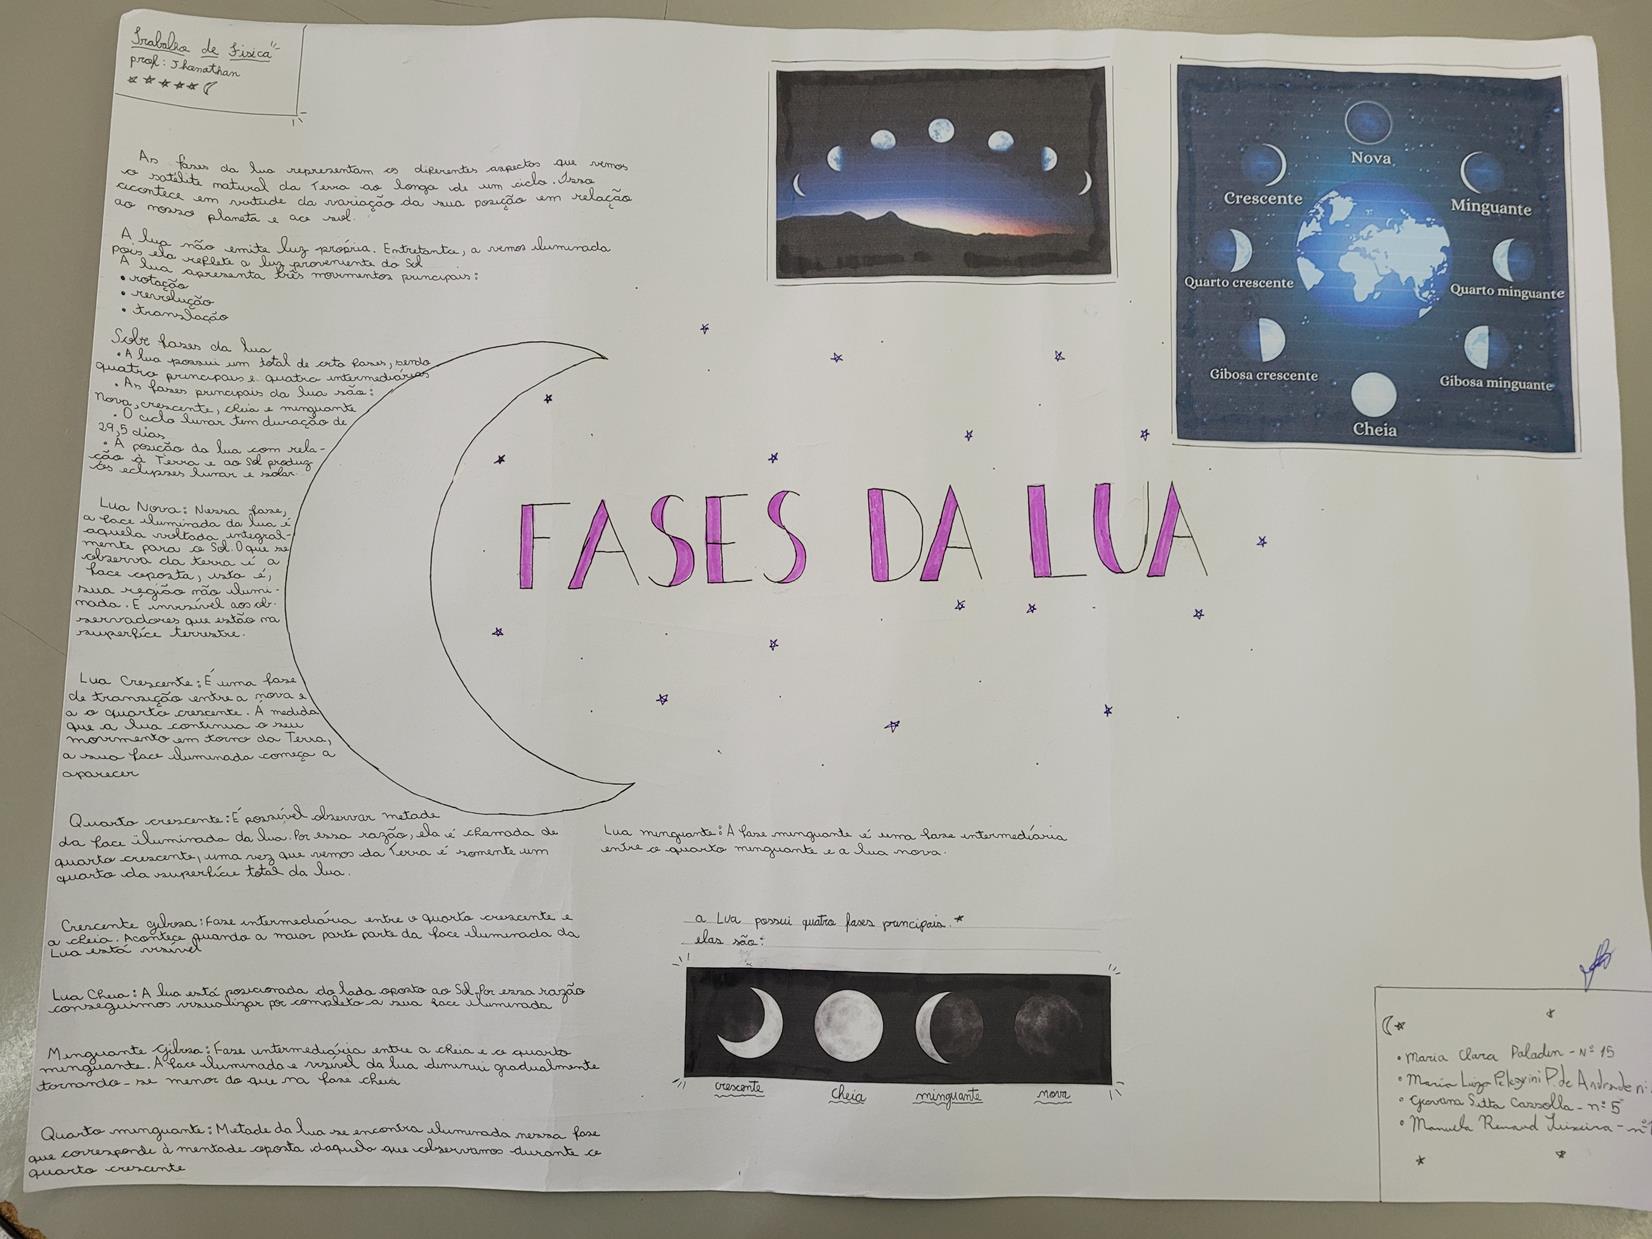 Trabalho de Física
prof: Jhonathan
As fases da lua representam os diferentes aspectos que vemos
o satélite natural da Terra ao longo de um ciclo. Isso
acontece em virtude da variação da sua posição em relação
ao nosso planeta e ao sol.
A lua não emite luz própria. Entretanto, a vemos iluminada
pois ela reflete a luz proveniente do Sol
A lua apresenta três movimentos principais:
• rotação
• revolução
• translação
Sobre fases da lua
• A lua possui um total de oito fases, sendo
quatro principais e quatro intermediárias
• As fases principais da lua são:
Nova, crescente, cheia e minguante
• O ciclo lunar tem duração de
29,5 dias
• A posição da lua com rela-
ção à Terra e ao Sol produz
os eclipses lunar e solar.
Lua Nova: Nessa fase,
a face iluminada da lua é
aquela voltada integral-
mente para o Sol. O que se
observa da terra é a
face oposta, isto é,
sua região não ilumi-
nada. É invisível aos ob-
servadores que estão na
superfíce terrestre.
Lua Crescente: É uma fase
de transição entre a nova e
a o quarto crescente. À medida
que a lua continua o seu
movimento em torno da Terra,
a sua face iluminada começa a
aparecer
Quarto crescente: É possível observar metade
da face iluminada da lua. Por essa razão, ela é chamada de
quarto crescente, uma vez que vemos da Terra é somente um
quarto da superfície total da lua.
Crescente gibosa: Fase intermediária entre o quarto crescente e
a cheia. Acontece quando a maior parte parte da face iluminada da
Lua está visível
Lua Cheia: A lua está posicionada do lado oposto ao Sol. Por essa razão
conseguimos visualizar por completo a sua face iluminada
Minguante Gibosa: Fase intermediária entre a cheia e o quarto
minguante. A face iluminada e visível da lua diminui gradualmente
tornando-se menor do que na fase cheia
Quarto minguante: Metade da lua se encontra iluminada nessa fase
que corresponde à mentade oposta daquela que observamos durante o
quarto crescente
FASES DA LUA
Nova
Crescente
Minguante
Quarto crescente
Quarto minguante
Gibosa crescente
Gibosa minguante
Cheia
Lua minguante: A fase minguante é uma fase intermediária
entre o quarto minguante e a lua nova.
a Lua possui quatro fases principais.*
elas são:
crescente
cheia
minguante
nova
• Maria Clara Paladin - Nº 15
• Maria Luiza Pelegrini P. de Andrade n:
• Giovana Sitta Cassolla - nº 5
• Manuela Renaud Teixeira - nº